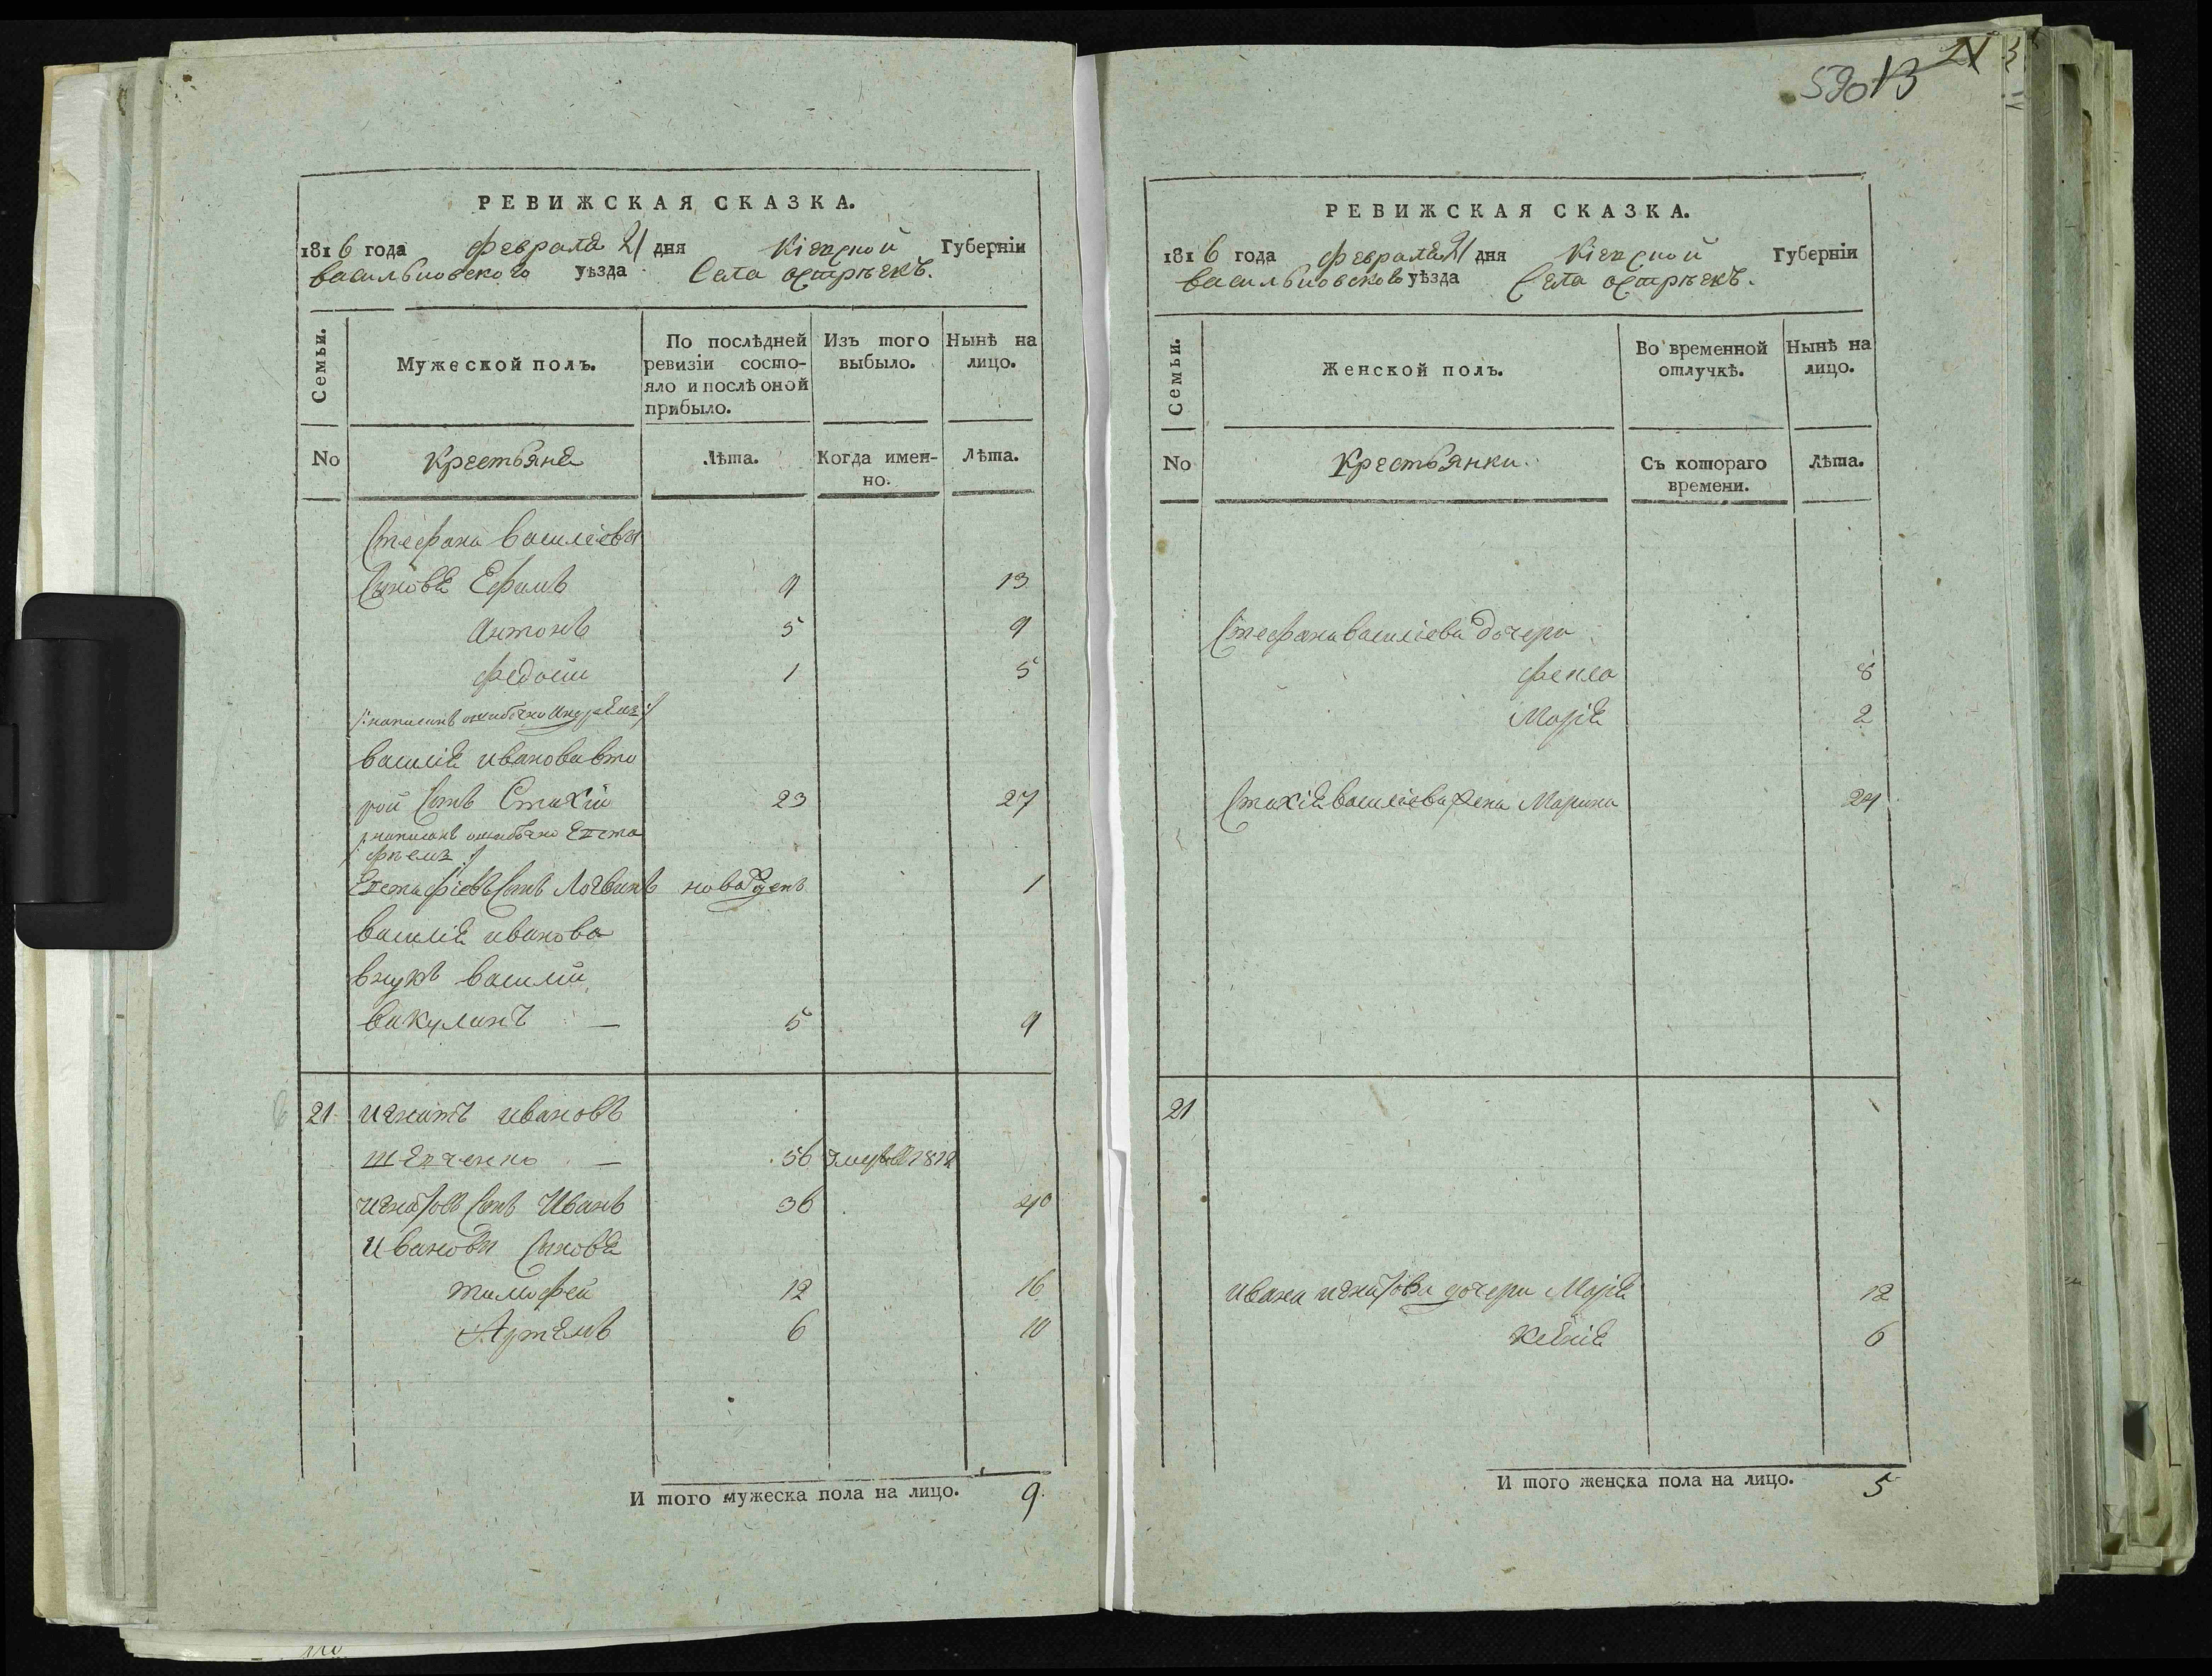 РЕВИЖСКАЯ СКАЗКА.
1816 года февраля 21 дня Кіевской Губерніи
васильковского уѣзда Села острѣекъ.
Семьи.
Мужеской полъ.
По послѣдней ревизіи состо-
яло и послѣ оной
прибыло.
Изъ того
выбыло.
Нынѣ на
лицо.
No
Крестьяне
Лѣта.
Когда имен-
но.
Лѣта.
Стефана василіевы
Сыновя Ефимъ 9 13
Антонъ 5 9
федосій 1 5
/:написанъ ошибочно
василія иванова вто
рой Сынъ Стахій 23 27
/:написанъ ошибочно Евста
фіемъ:/
Евстафіевъ Сынъ Логвинъ новорожденъ 1
василія иванова
внукъ василій
вакулинъ — 5 9
21 игнатъ ивановъ
— 56 1812
игнатовъ Сынъ Иванъ 36 40
Ивановы Сыновя
тимофей 12 16
Артемъ 6 10
И того мужеска пола на лицо. 9.
590 13 21
РЕВИЖСКАЯ СКАЗКА.
1816 года февраля 21 дня Кіевской Губерніи
васильковского уѣзда Села острѣекъ.
Семьи.
Женской полъ.
Во временной
отлучкѣ.
Нынѣ на
лицо.
No
Крестьянки.
Съ котораго
времени.
Лѣта.
Стефана василіева дочери
фекла 8
Марія 2
Стахія василіева жена Марина 24
21
ивана игнатова дочери Марія 12
Ксенія 6
И того женска пола на лицо. 5